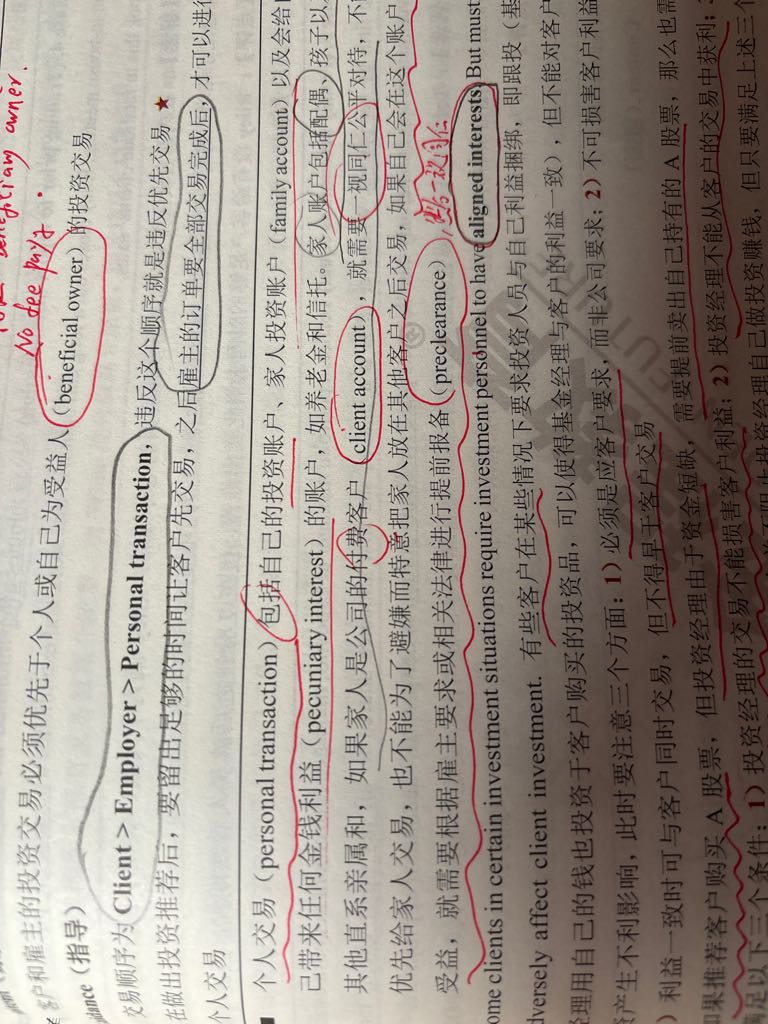 No fee pays.
beneficiary owner.
客户和雇主的投资交易必须优先于个人或自己为受益人（beneficial owner）的投资交易
idance（指导）
交易顺序为 Client > Employer > Personal transaction，违反这个顺序就是违反优先交易 ★
在做出投资推荐后，要留出足够的时间让客户先交易，之后雇主的订单要全部交易完成后，才可以进行
个人交易
■ 个人交易（personal transaction）包括自己的投资账户、家人投资账户（family account）以及会给
己带来任何金钱利益（pecuniary interest）的账户，如养老金和信托。家人账户包括配偶，孩子以
其他直系亲属和，如果家人是公司的付费客户（client account），就需要一视同仁公平对待，不
优先给家人交易，也不能为了避嫌而特意把家人放在其他客户之后交易，如果自己会在这个账户
受益，就需要根据雇主要求或相关法律进行提前报备（preclearance）
一视同仁
ome clients in certain investment situations require investment personnel to have aligned interests. But must
dversely affect client investment. 有些客户在某些情况下要求投资人员与自己利益捆绑，即跟投（基
经理用自己的钱也投资于客户购买的投资品，可以使得基金经理与客户的利益一致），但不能对客户
资产生不利影响，此时要注意三个方面：1）必须是应客户要求，而非公司要求；2）不可损害客户利益
）利益一致时可与客户同时交易，但不得早于客户交易
如果推荐客户购买 A 股票，但投资经理由于资金短缺，需要提前卖出自己持有的 A 股票，那么也需
满足以下三个条件：1）投资经理的交易不能损害客户利益；2）投资经理不能从客户的交易中获利；
并不阻止投资经理自己做投资赚钱，但只要满足上述三个